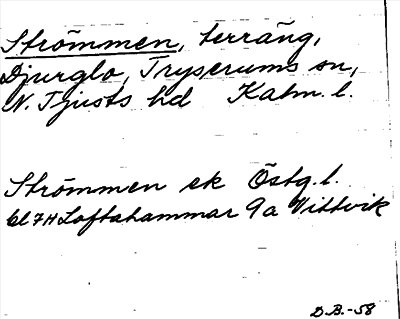 Strömmen, terräng,
Djurglo, Tryserums sn,
N. Tjusts hd Kalm. l.
Strömmen ek Östg. l.
bl 7H Loftahammar 9a Vittvik
D.B.-58